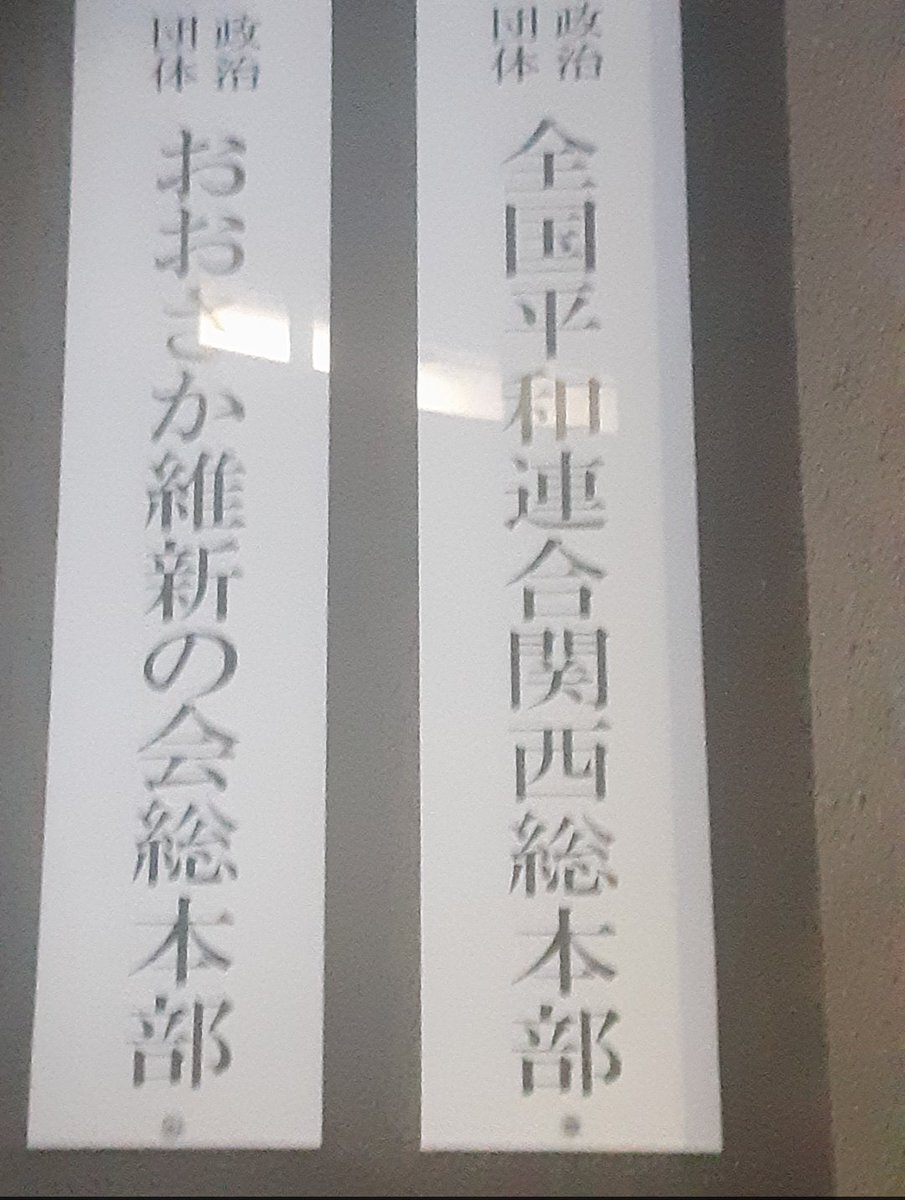 政治団体
全国平和連合関西総本部
政治団体
おおさか維新の会総本部